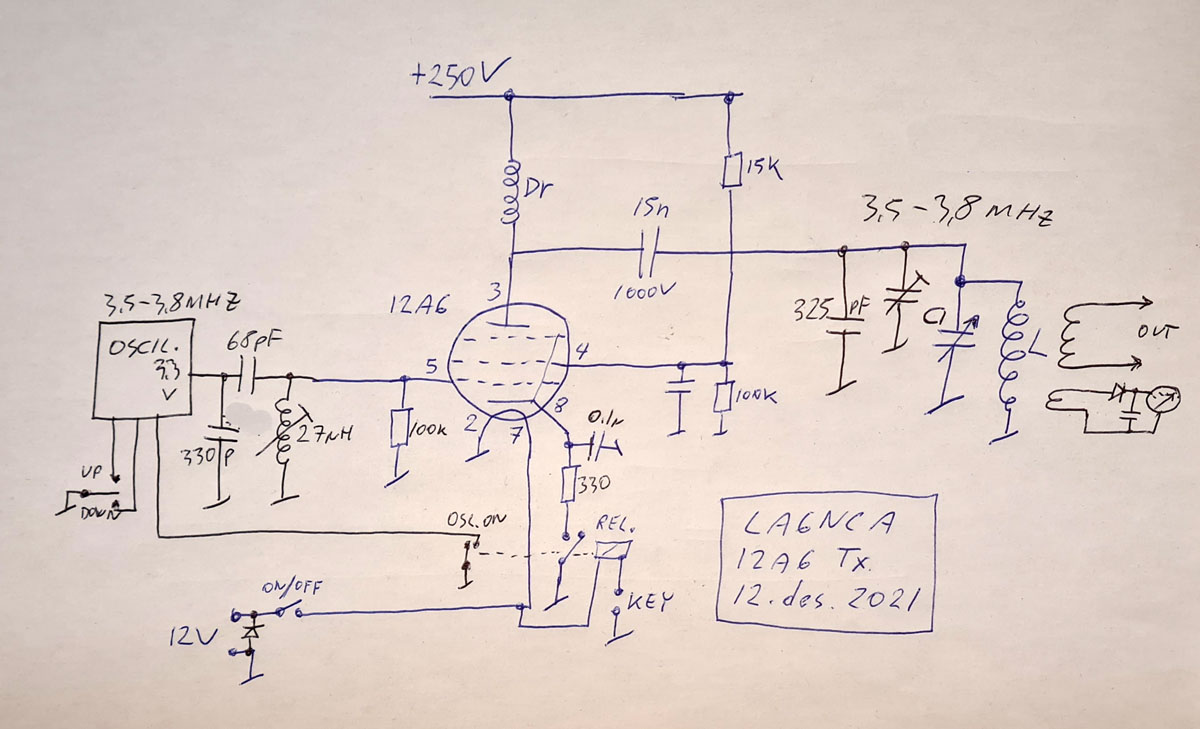 +250V
Dr
15k
15n
1000V
3,5-3,8MHZ
12A6
3
4
5
2
7
8
3,5-3,8MHZ
OSCIL.
3,3
V
68pF
330p
27µH
100k
325 pF
C1
L
OUT
100k
0.1µ
330
UP
DOWN
OSC.ON
REL.
KEY
ON/OFF
12V
LA6NCA
12A6 Tx.
12.des. 2021